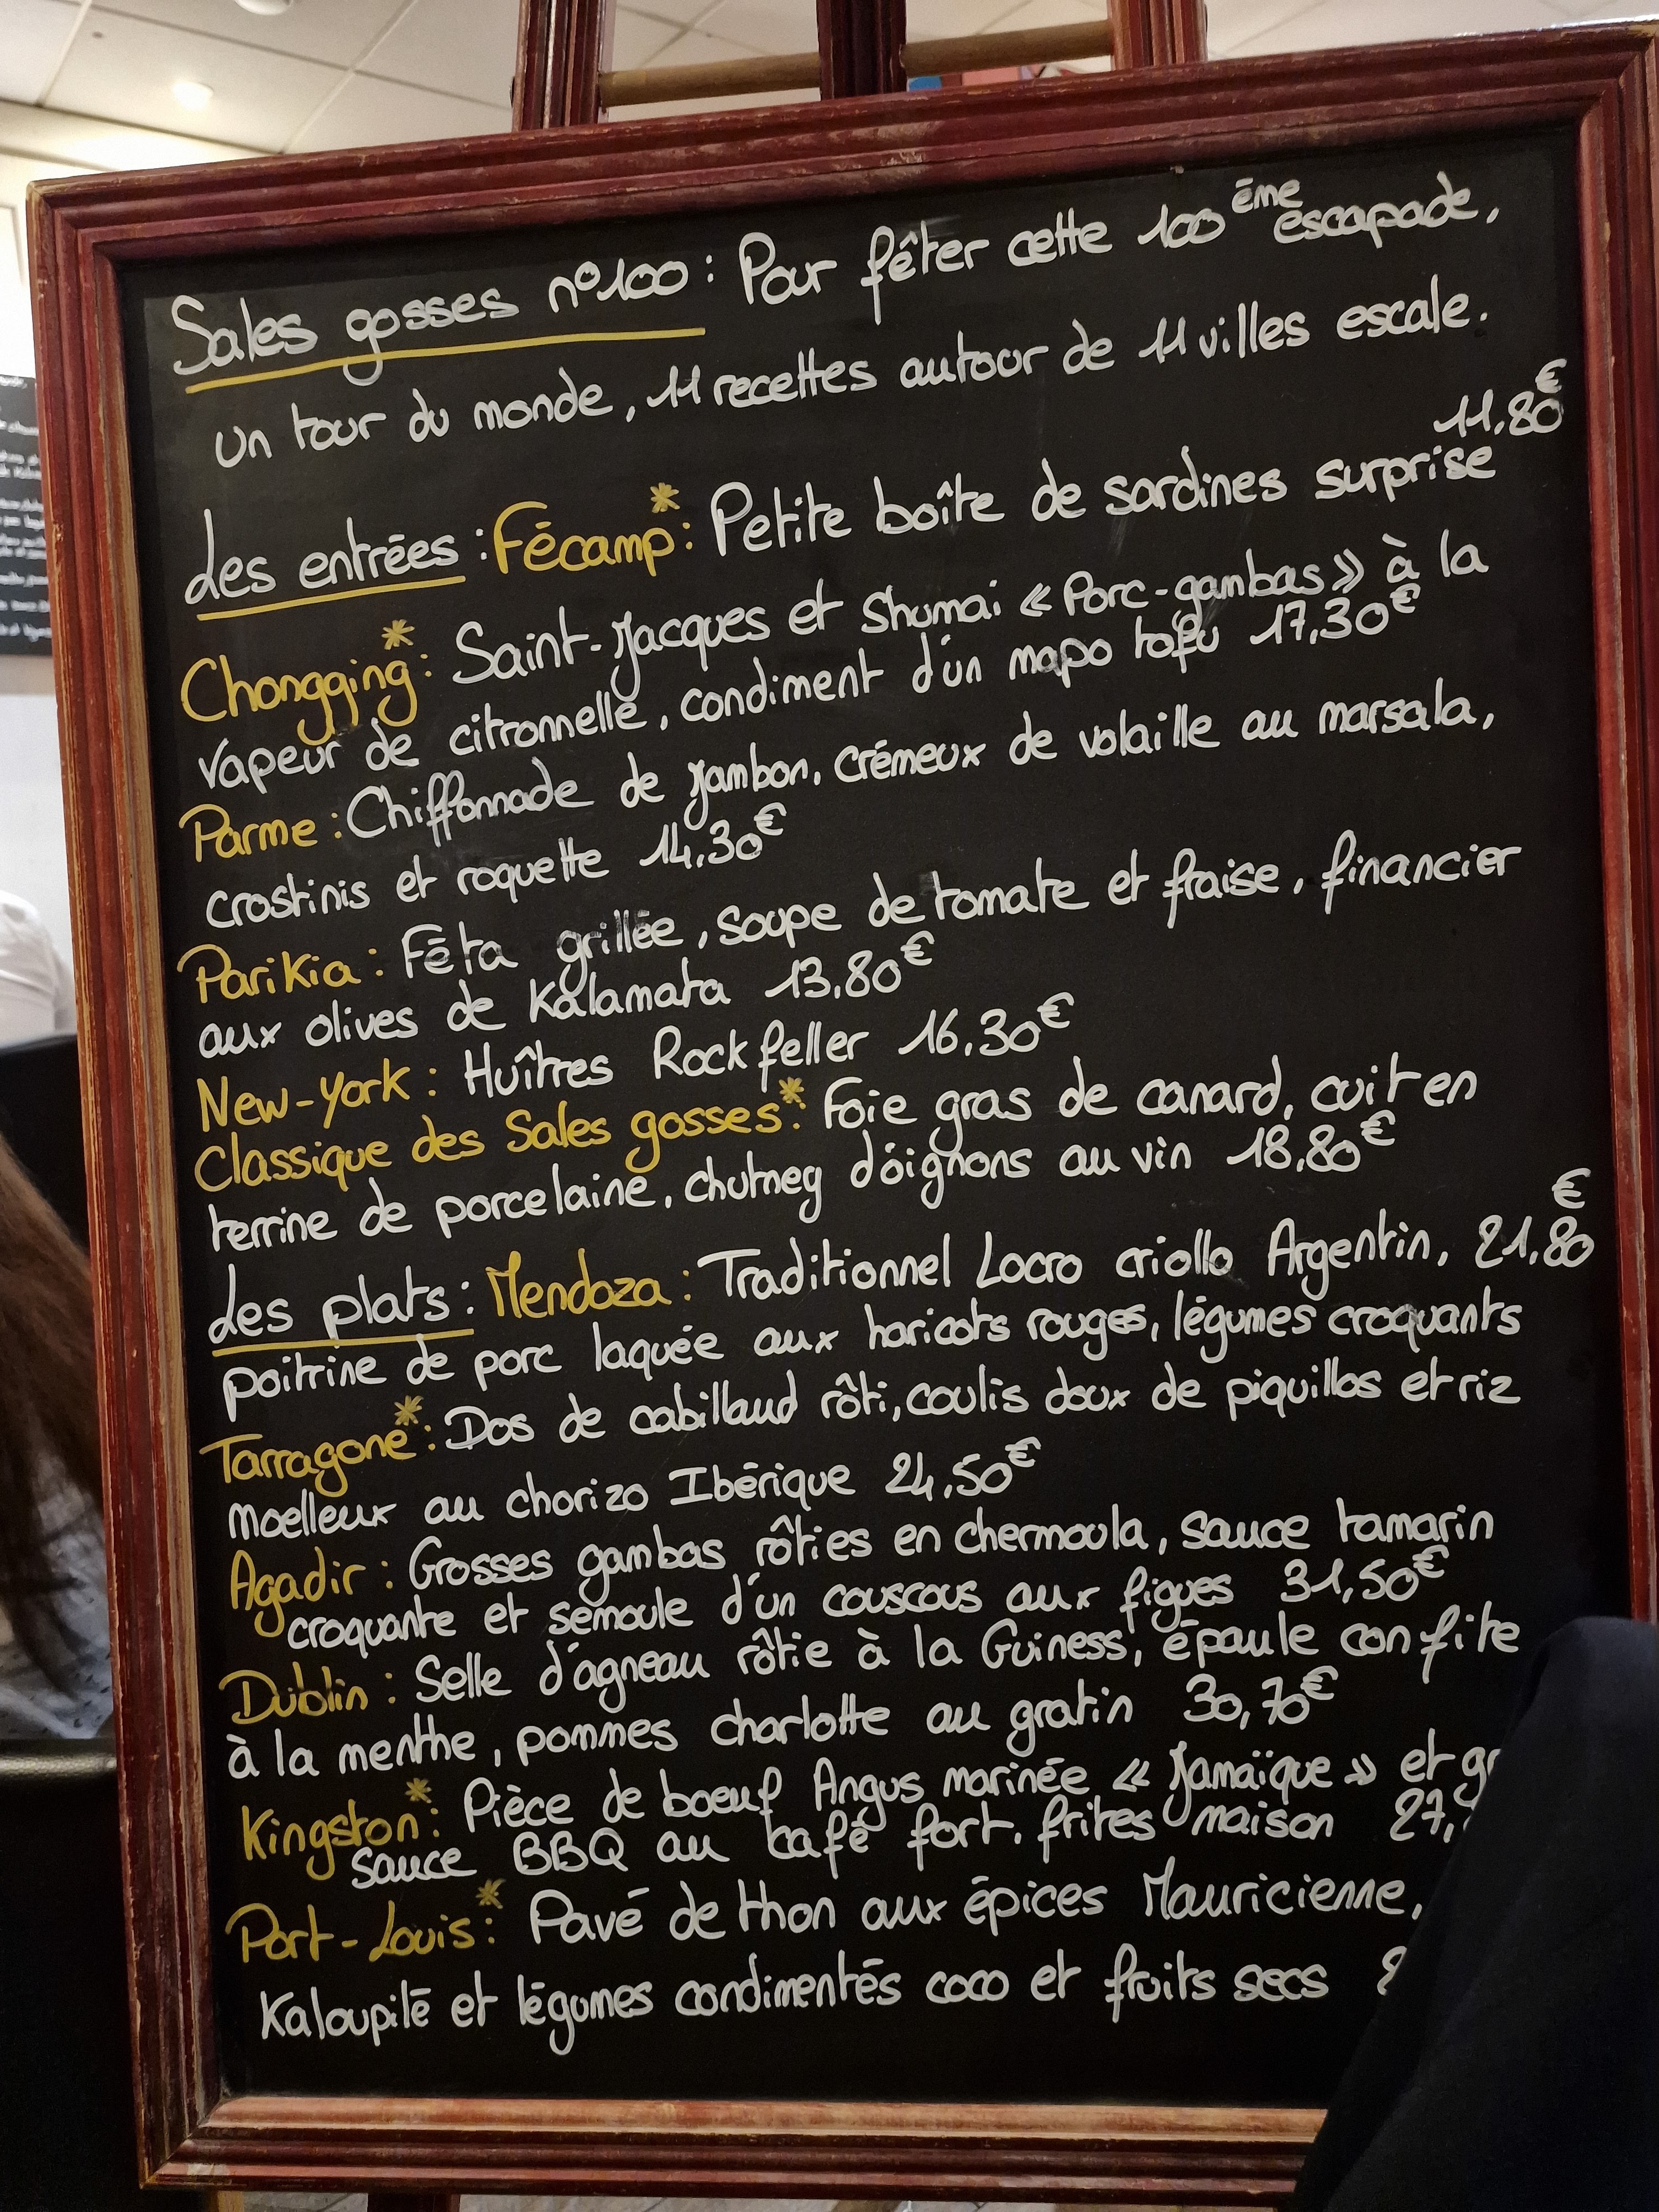 Sales gosses n°100 : Pour fêter cette 100ème escapade,
un tour du monde, 11 recettes autour de 11 villes escale.
11,80€
Les entrées : Fécamp* : Petite boîte de sardines surprise
Chongqing* : Saint-Jacques et Shumai « Porc-gambas » à la
vapeur de citronnelle, condiment d'un mapo tofu 17,30€
Parme : Chiffonnade de jambon, crémeux de volaille au marsala,
crostinis et roquette 14,30€
Parikia : Féta grillée, soupe de tomate et fraise, financier
aux olives de Kalamata 13,80€
New-York : Huîtres Rockfeller 16,30€
Classique des Sales gosses* : Foie gras de canard, cuit en
terrine de porcelaine, chutney d'oignons au vin 18,80€
Les plats : Mendoza : Traditionnel Locro criollo Argentin, 21,80€
poitrine de porc laquée aux haricots rouges, légumes croquants
Tarragone* : Dos de cabillaud rôti, coulis doux de piquillos et riz
moelleux au chorizo Ibérique 24,50€
Agadir : Grosses gambas rôties en chermoula, sauce tamarin
croquante et semoule d'un couscous aux figues 31,50€
Dublin : Selle d'agneau rôtie à la Guiness, épaule confite
à la menthe, pommes charlotte au gratin 30,70€
Kingston* : Pièce de boeuf Angus marinée « Jamaïque » et
sauce BBQ au café fort, frites maison 27,
Port-Louis* : Pavé de thon aux épices Mauricienne,
Kaloupilé et légumes condimentés coco et fruits secs